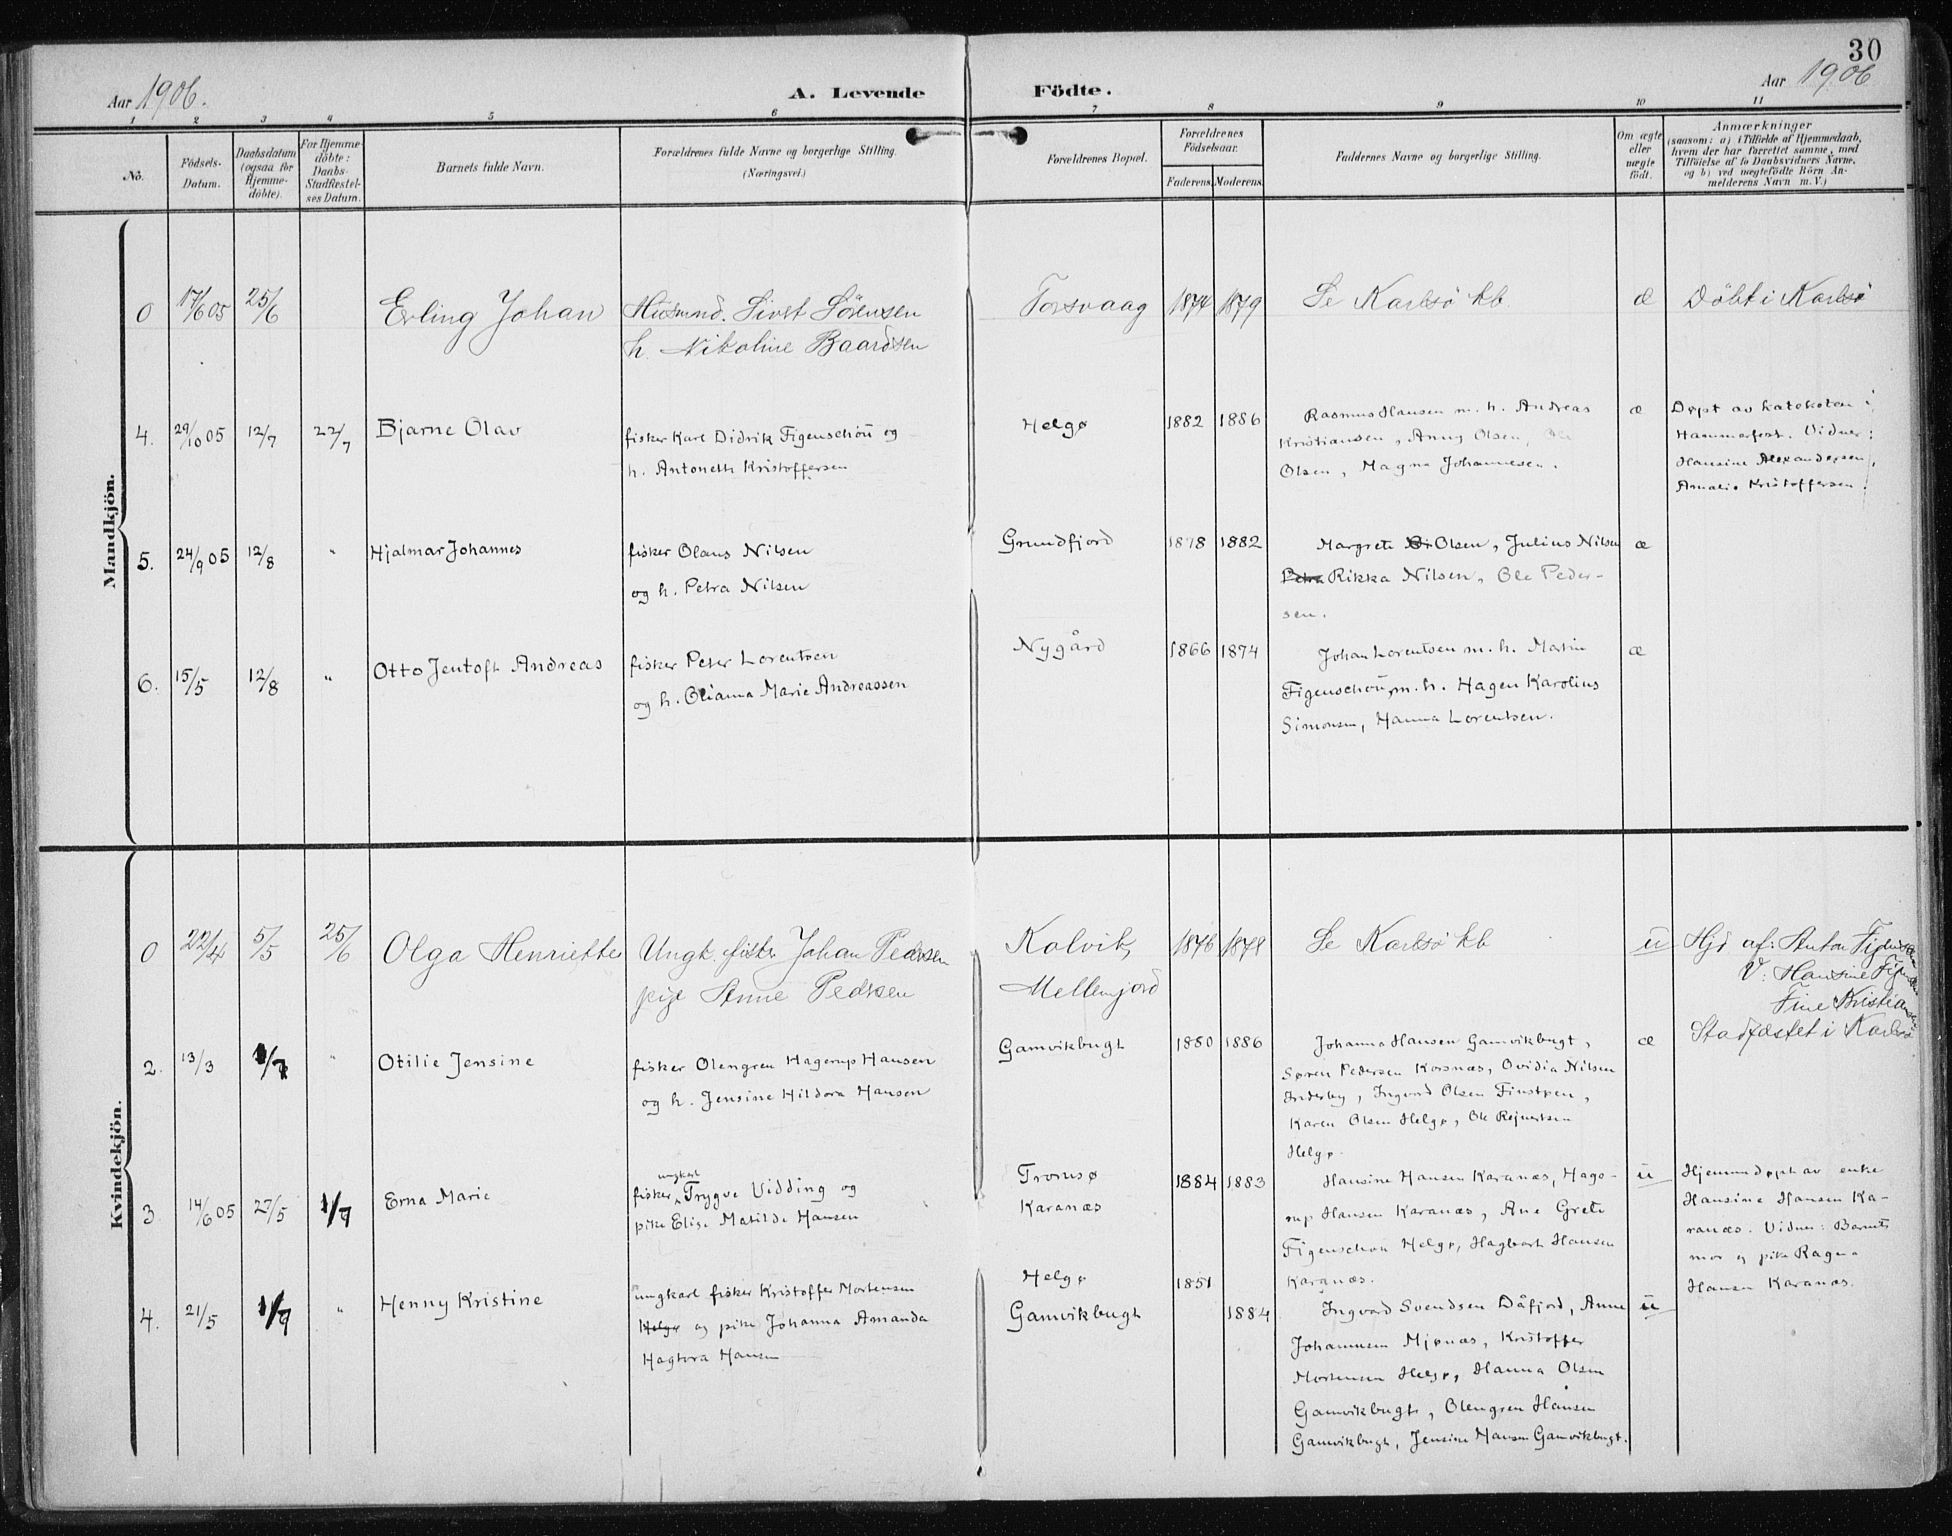 30
Aar 1906.
A. Levende Födte.
Aar 1906
1 2 3 4 5 6 7 8 9 10 11
No.
Födsels-Datum.
Daabsdatum (ogsaa for Hjemme-döbte).
For Hjemme-döbte: Daabs-Stadfæstel-ses Datum.
Barnets fulde Navn.
Forældrenes fulde Navne og borgerlige Stilling.
(Næringsvei.)
Forældrenes Bopæl.
Forældrenes Födselsaar.
Faderens. Moderens.
Faddernes Navne og borgerlige Stilling.
Om ægte eller uægte födt.
Anmærkninger
(saasom: a) i Tilfælde af Hjemmedaab,
hvem der har forrettet samme, med
Tilföielse af to Daabsvidners Navne,
og b) ved uægtefödte Börn An-
melderens Navn m. V.)
Mandkjön.
0 17/6 05 25/6 Erling Johan Husmnd. Sivert Sörensen Torsvaag 1874 1879 Se Karlsö kb. æ Döbt i Karlsö
h. Nikoline Baardsen
4. 29/10 05 12/7 22/7 Bjarne Olav fisker Karl Didrik Figenschöu og Helgø 1882 1886 Rasmus Hansen m. h. Andreas æ Døpt av katekaten i
h. Antoneth Kristoffersen Kristiansen, Anny Olsen, Ole Hammerfest. Vidner:
Olsen, Magna Johannesen. Hansine Alexandersen,
Amalie Kristoffersen.
5. 24/9 05 12/8 " Hjalmar Johannes fisker Olaus Nilsen Grundfjord 1878 1882 Margrete Olsen, Julius Nilsen æ
og h. Petra Nilsen Petra Rikka Nilsen, Ole Peder-
sen.
6. 15/5 12/8 " Otto Jentoft Andreas fisker Peter Lorentsen Nygård 1866 1874 Johan Lorentsen m. h. Martin æ
og h. Olianna Marie Andreassen Figenschou m. h. Hagen Karolius
Simonsen, Hanna Lorentsen.
Kvindekjön.
0 22/4 5/5 25/6 Olga Henriette Ungk. fisker Johan Pedersen Kolvik, 1876 1878 Se Karlsö kb u Hjd. af: Anton
pige Anne Pedersen Mellemjord V: Hansine
Fine Kristiansen
Stadfæstet i Karlsö
2. 13/3 1/7 " Otilie Jensine fisker Olengren Hagerup Hansen Gamvikbugt 1880 1886 Johanna Hansen Gamvikbugt, æ
og h. Jensine Hildora Hansen Søren Pedersen Korsnæs, Ovidia Nilsen
Inderby, Ingvard Olsen Finstpen,
Karen Olsen Helgø, Ole Rejnertsen
Helgø.
3. 14/6 05 27/5 1/7 Erna Marie fisker ungkarl Trygve Vidding og Tromsø 1884 1883 Hansine Hansen Karanæs, Hage- u Hjemmedøpt av enke
pike Elise Matilde Hansen Karanæs rup Hansen Karanæs, Ane Grete Hansine Hansen Ka-
Figenschou Helgø, Hagbart Hansen ranæs. Vidner: Barnets
Karanæs. mor og pike Ragna
Hansen Karanæs.
4. 21/5 1/7 " Henny Kristine ungkarl fisker Kristoffer Mortensen Helgø 1851
Helgø og pike Johanna Amanda Gamvikbugt 1884 Ingvard Svendsen Dåfjord, Anne u
Hagtora Hansen Johannesen Mjønæs, Kristoffer
Mortensen Helgø, Hanna Olsen
Gamvikbugt, Olengren Hansen
Gamvikbugt, Jensine Hansen Gamvikbugt.